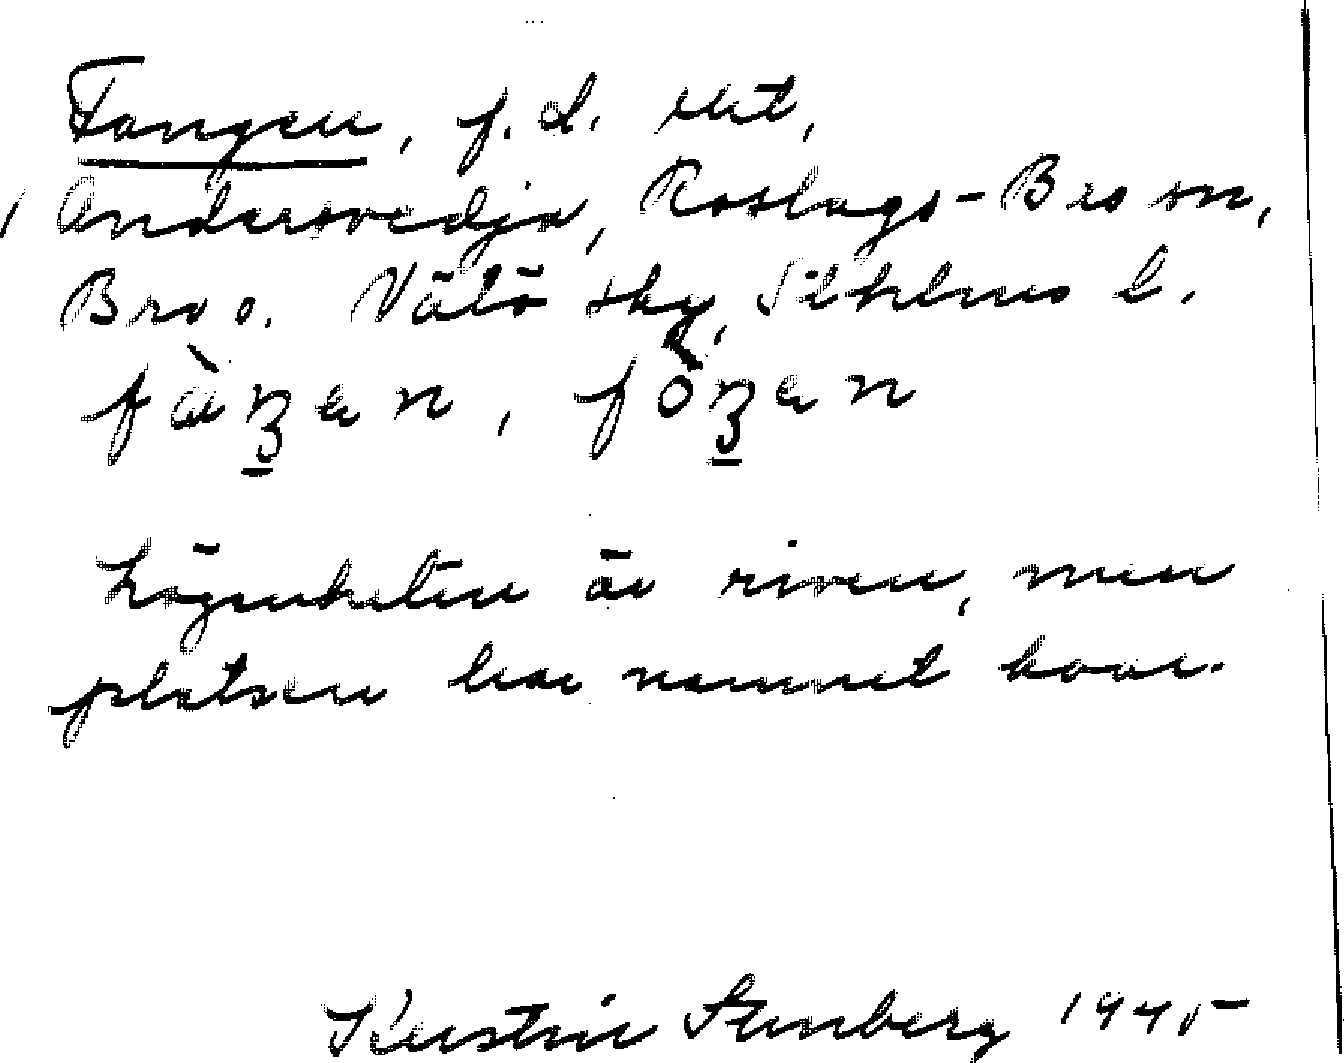 Fangen, f. d. utt,
Andersvedja, Roslags-Bro sn,
Bro o. Vätö skg, Sthlms l.
Lägenheten är riven, men
platsen har namnet kvar.
Kerstin Stenberg 1945